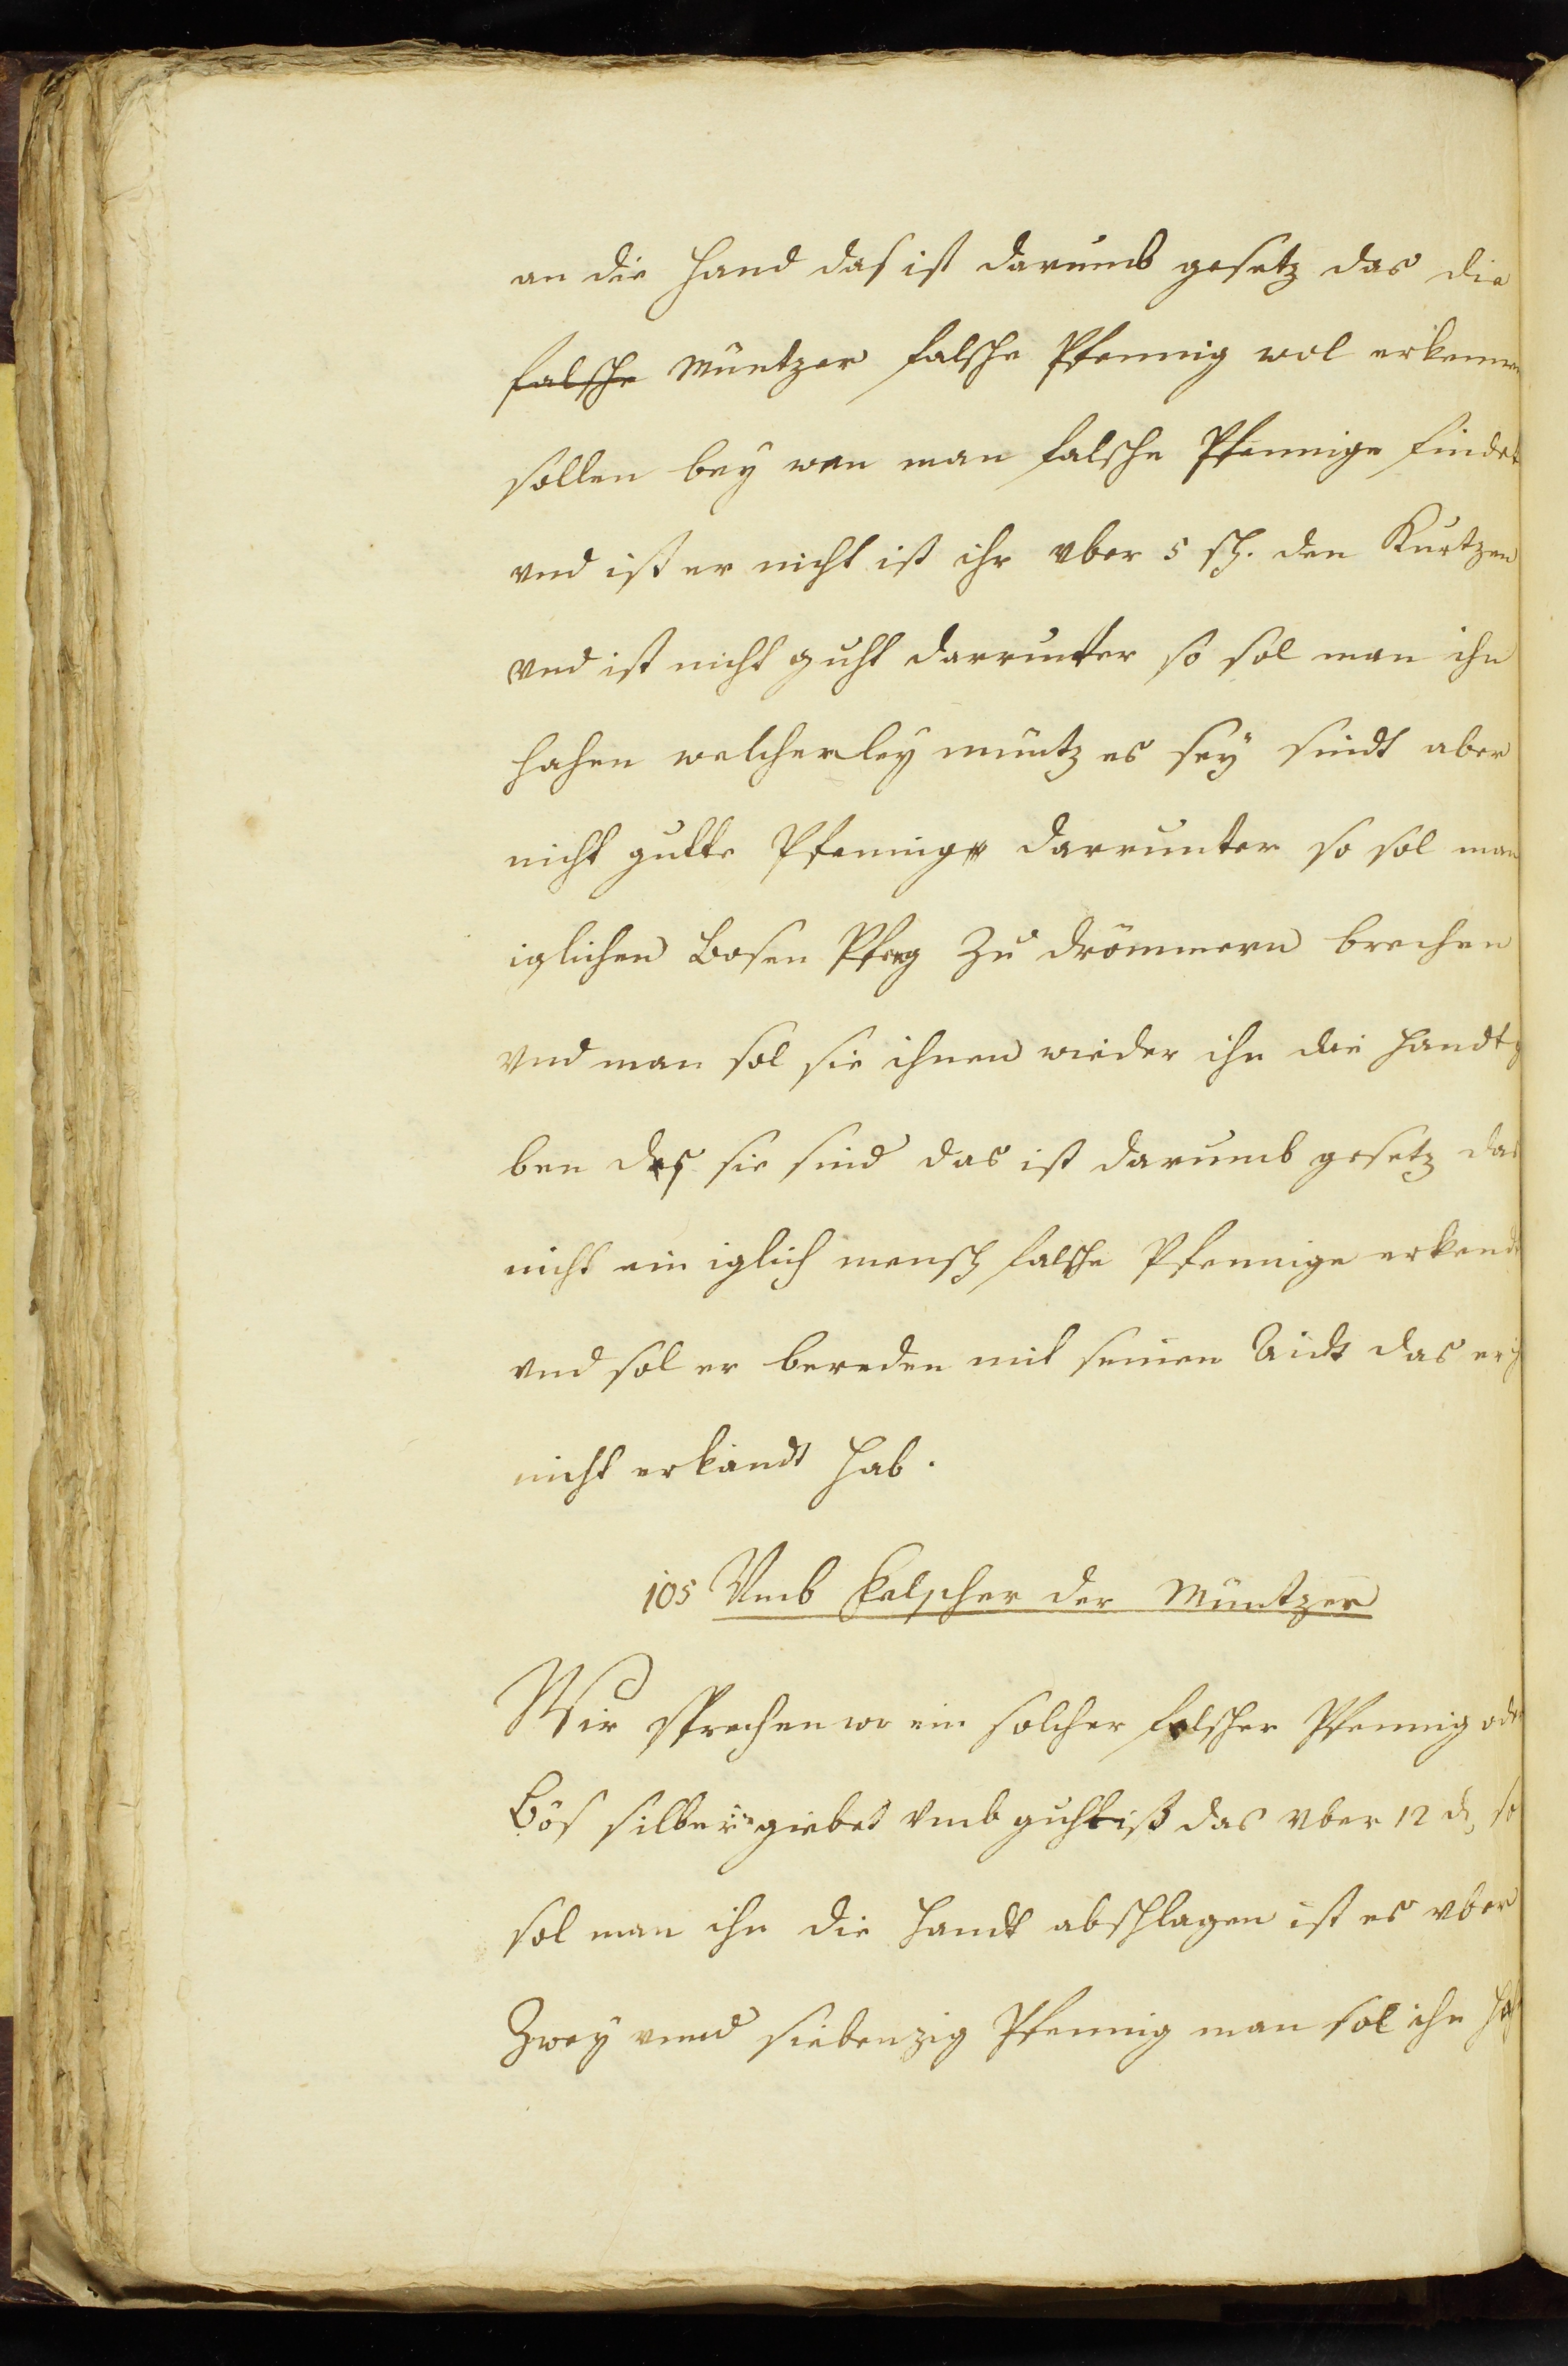 an die Hand das ist darumb gesetz das die
falsche Müntzer falsche Pfennig wol erkennen
sollen bey wen man falsche Pfennige findet
vnd ist er nicht ist ihr vber 5 sch. den Kurtzen
vnd ist nicht guht darrunter so sol man ihn
hahen welcherley müntz es sey sindt aber
nicht gutte Pfennige darrunter so sol man
iglichen Bosen Pfeng zu drömmern brechen
vnd man sol sie ihnen wieder ihn die handt
ben des sie sind das ist darumb gesetz das
nicht ein iglich mensch falsche Pfennige erkendt
vnd sol er bereden mit seinen Aidt das er
nicht erkandt hab.
105 Vmb Felscher der Müntzer
Wir sprechen wo ein solcher falscher Pfennig oder
Bös silber giebet vmb guht ist das vber 12 d, so
sol man ihn die handt abschlagen ist es vber
Zwey vnnd siebenzig Pfennig man sol ihn